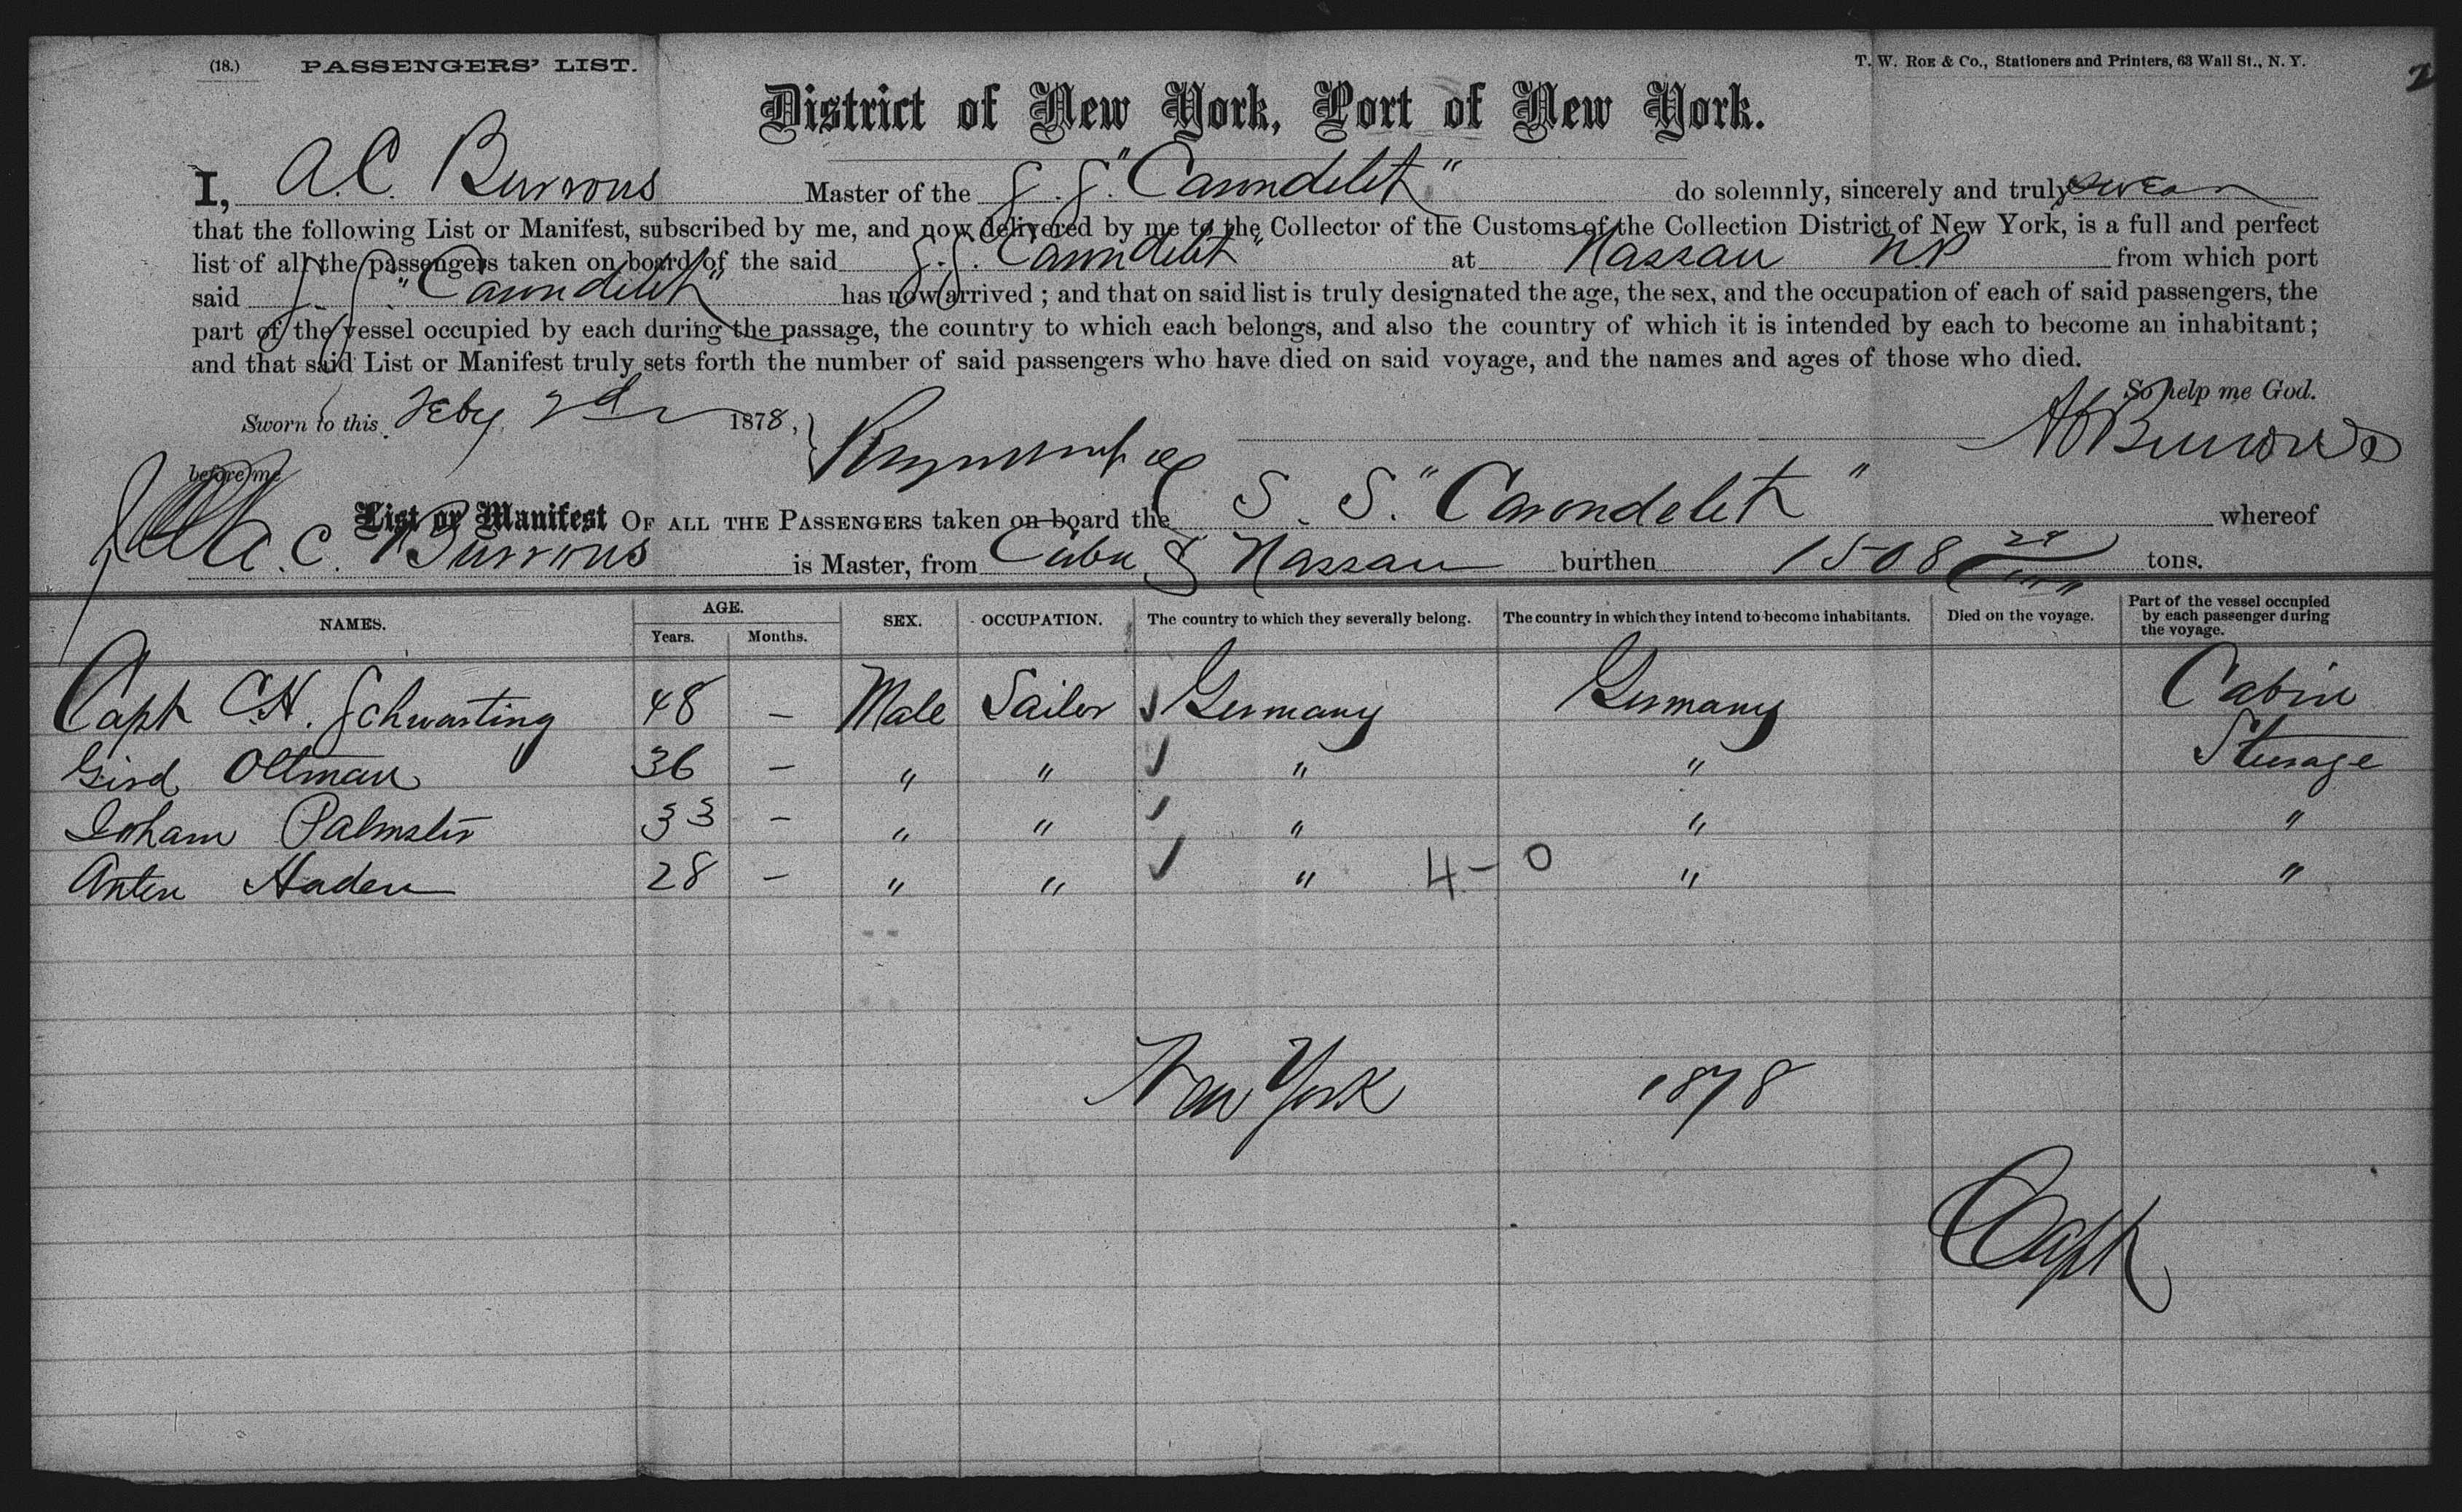 (18.) PASSENGERS' LIST.
T. W. ROE & CO., Stationers and Printers, 63 Wall St., N. Y.
2
District of New York, Port of New York.
I, A. C. Burrows Master of the S. S. "Carondelet" do solemnly, sincerely and truly swear
that the following List or Manifest, subscribed by me, and now delivered by me to the Collector of the Customs of the Collection District of New York, is a full and perfect
list of all the passengers taken on board of the said S. S. "Carondelet" at Nassau N.P from which port
said S. S. "Carondelet" has now arrived ; and that on said list is truly designated the age, the sex, and the occupation of each of said passengers, the
part of the vessel occupied by each during the passage, the country to which each belongs, and also the country of which it is intended by each to become an inhabitant ;
and that said List or Manifest truly sets forth the number of said passengers who have died on said voyage, and the names and ages of those who died.
So help me God.
Sworn to this Feby 2d 1878,
A C Burrows
before me
List or Manifest OF ALL THE PASSENGERS taken on board the S. S. "Carondelet" whereof
A. C. Burrows is Master, from Cuba & Nassau burthen 1508 tons.
NAMES. AGE. Years. Months. SEX. OCCUPATION. The country to which they severally belong. The country in which they intend to become inhabitants. Died on the voyage. Part of the vessel occupied by each passenger during the voyage.
Capt C.H. Schwarting 48 — Male Sailor Germany Germany Cabin
Gird Oltman 36 — " " " " Sterage
Joham Palmster 33 — " " " " "
Anten Haden 28 — " " " 4 - 0 " "
New York 1878
Capt